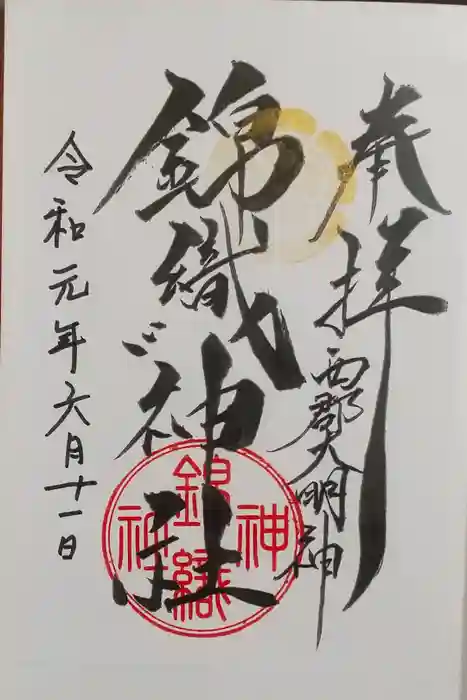 奉拝
西郡大明神
錦織神社
令和元年六月十一日
錦織
神社